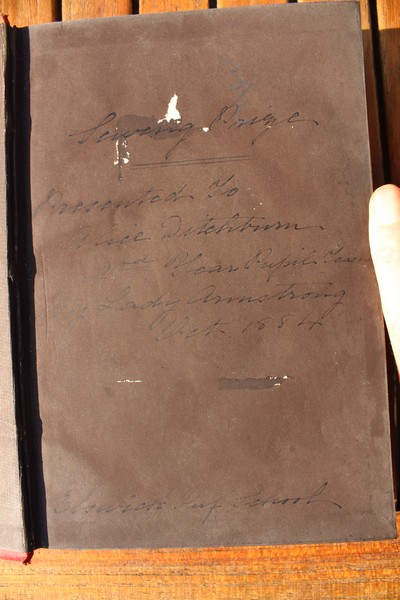 Sewing Prize
Presented To
Alice Ditchburn
2nd Year Pupil Teac
by Lady Armstrong
Oct. 1884
Elswick Inf School